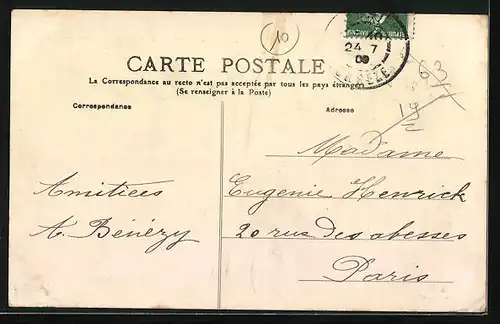 10
24 7
09
63
CARTE POSTALE
La Correspondance au recto n'est pas acceptée par tous les pays étrangers
(Se renseigner à la Poste)
Correspondance
Adresse
Madame
Amitiées
Eugenie Henrick
A. Bénézy
20 rue des abesses
Paris